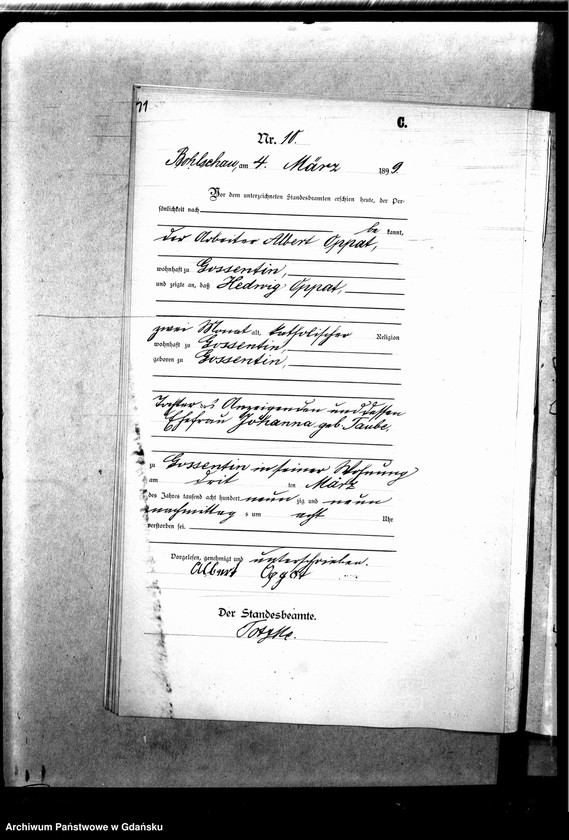 71
C.
Nr. 10.
Bohlschau, am 4. März 1899.
Vor dem unterzeichneten Standesbeamten erschien heute, der Per-
sönlichkeit nach
be kannt,
der Arbeiter Albert Oppat,
wohnhaft zu Gossentin,
und zeigte an, daß Hedwig Oppat,
zwei Monat alt, katholischer Religion
wohnhaft zu Gossentin,
geboren zu Gossentin,
Tochter des Anzeigenden und dessen
Ehefrau Johanna geb. Taube,
zu Gossentin in seiner Wohnung
am drit ten März
des Jahres tausend acht hundert neun zig und neun
nachmittag s um acht Uhr
verstorben sei.
Vorgelesen, genehmigt und unterschrieben.
Albert Oppat
Der Standesbeamte.
Archiwum Państwowe w Gdańsku